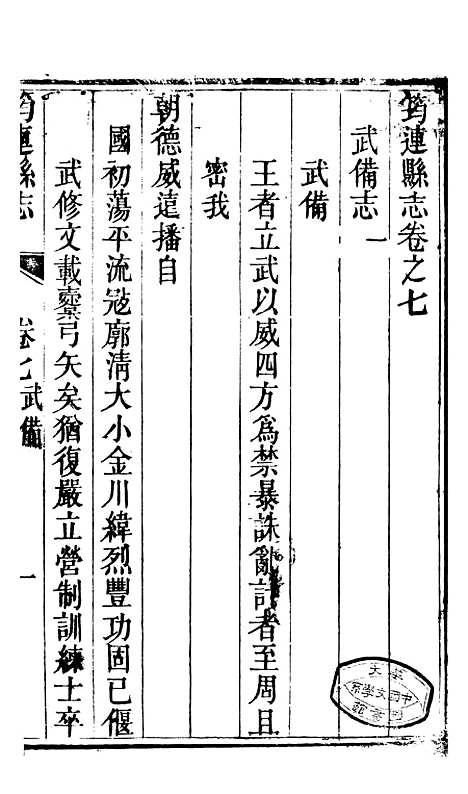 筠連縣志卷之七
武備志一
武備
王者立武以威四方爲禁暴誅亂計者至周且
密我
朝德威遠播自
國初蕩平流寇廓清大小金川緯烈豐功固已偃
武修文載櫜弓矢矣猶復嚴立營制訓練士卒
筠連縣志
卷七武備
一